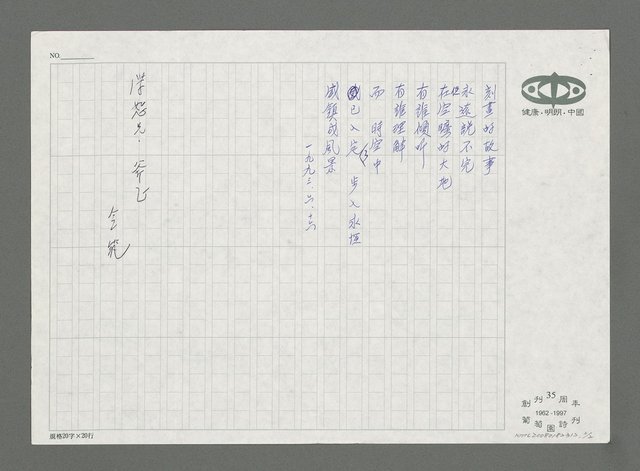 NO.
刻畫好故事
永遠說不完
但在空曠好大地
有誰傾听
有誰理解
而 時空中
已入定 步入永恒
威鎮成風景
一九九三.六.十六
洋恕兄.斧正
健康・明朗・中國
創刊35周年
1962-1997
葡萄園詩刊
規格20字×20行